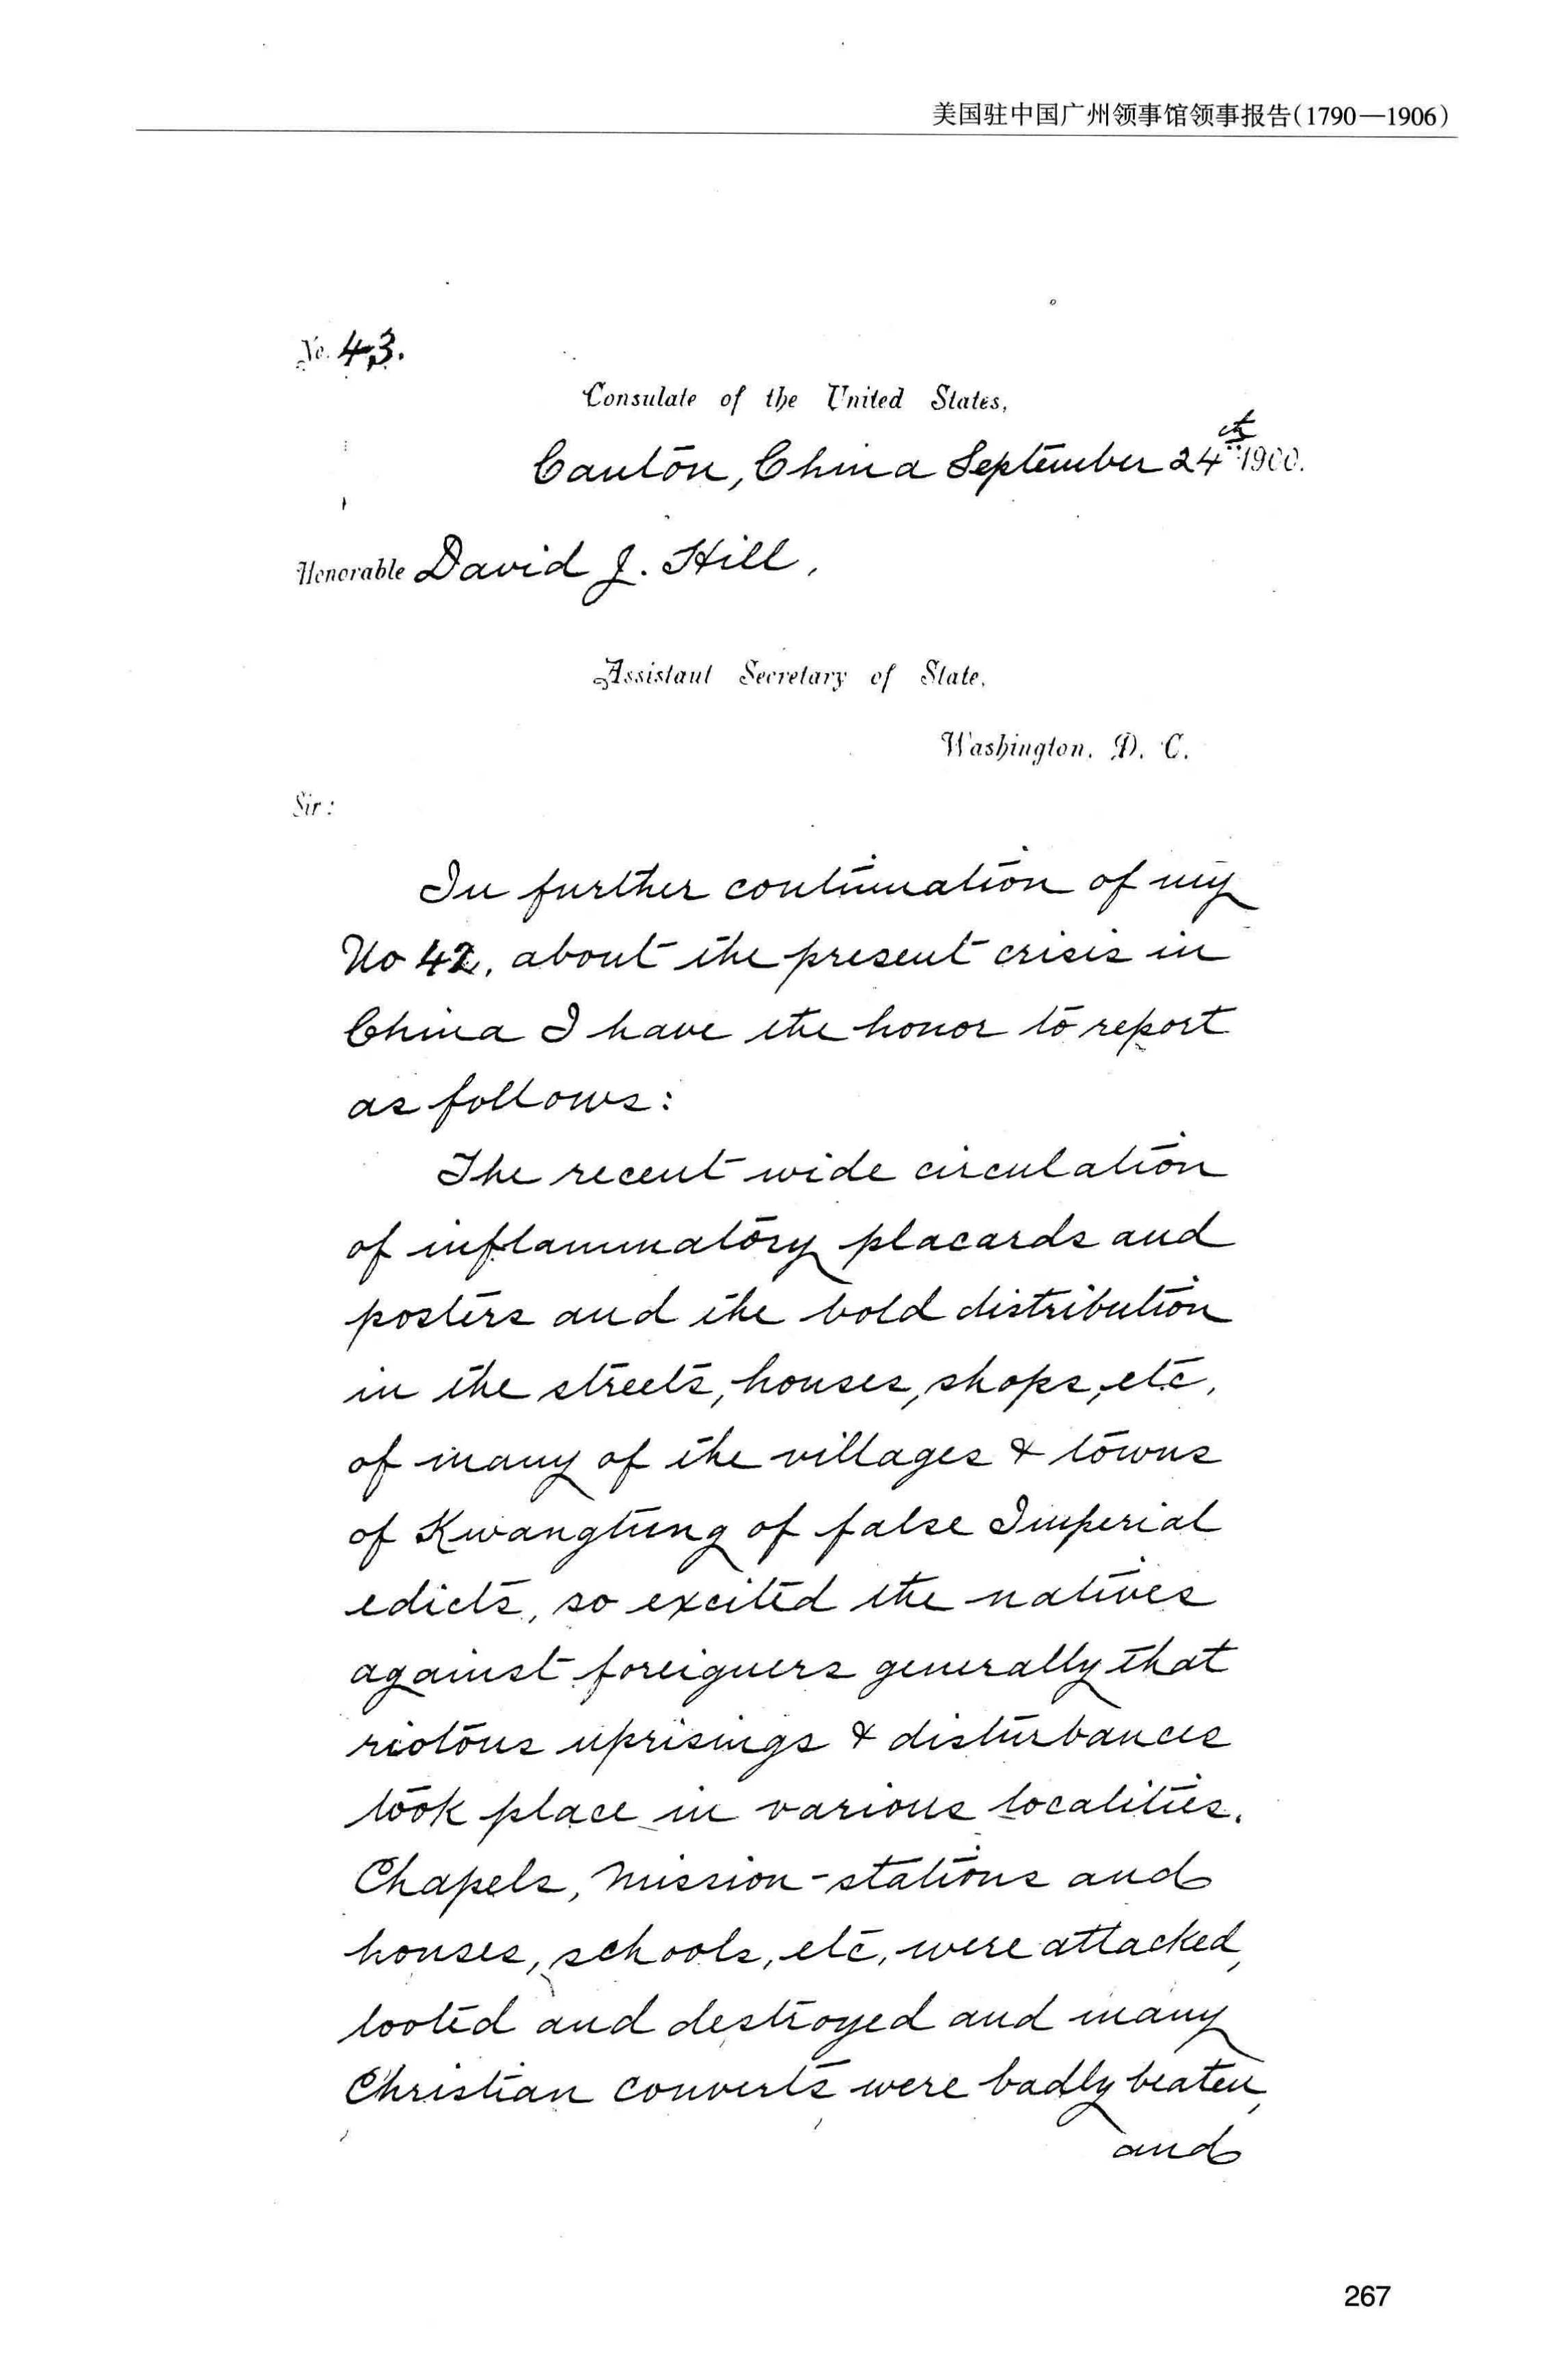 美国驻中国广州领事馆领事报告(1790—1906)
No. 43.
Consulate of the United States,
Canton, China September 24th 1900.
Honorable David J. Hill,
Assistant Secretary of State,
Washington, D. C.
Sir:
In further continuation of my
No 42, about the present crisis in
China I have the honor to report
as follows:
The recent wide circulation
of inflammatory placards and
posters and the bold distribution
in the streets, houses, shops, etc,
of many of the villages & towns
of Kwangtung of false Imperial
edicts, so excited the natives
against foreigners generally that
riotous uprisings & disturbances
took place in various localities.
Chapels, mission-stations and
houses, schools, etc, were attacked,
looted and destroyed and many
Christian converts were badly beaten,
and
267